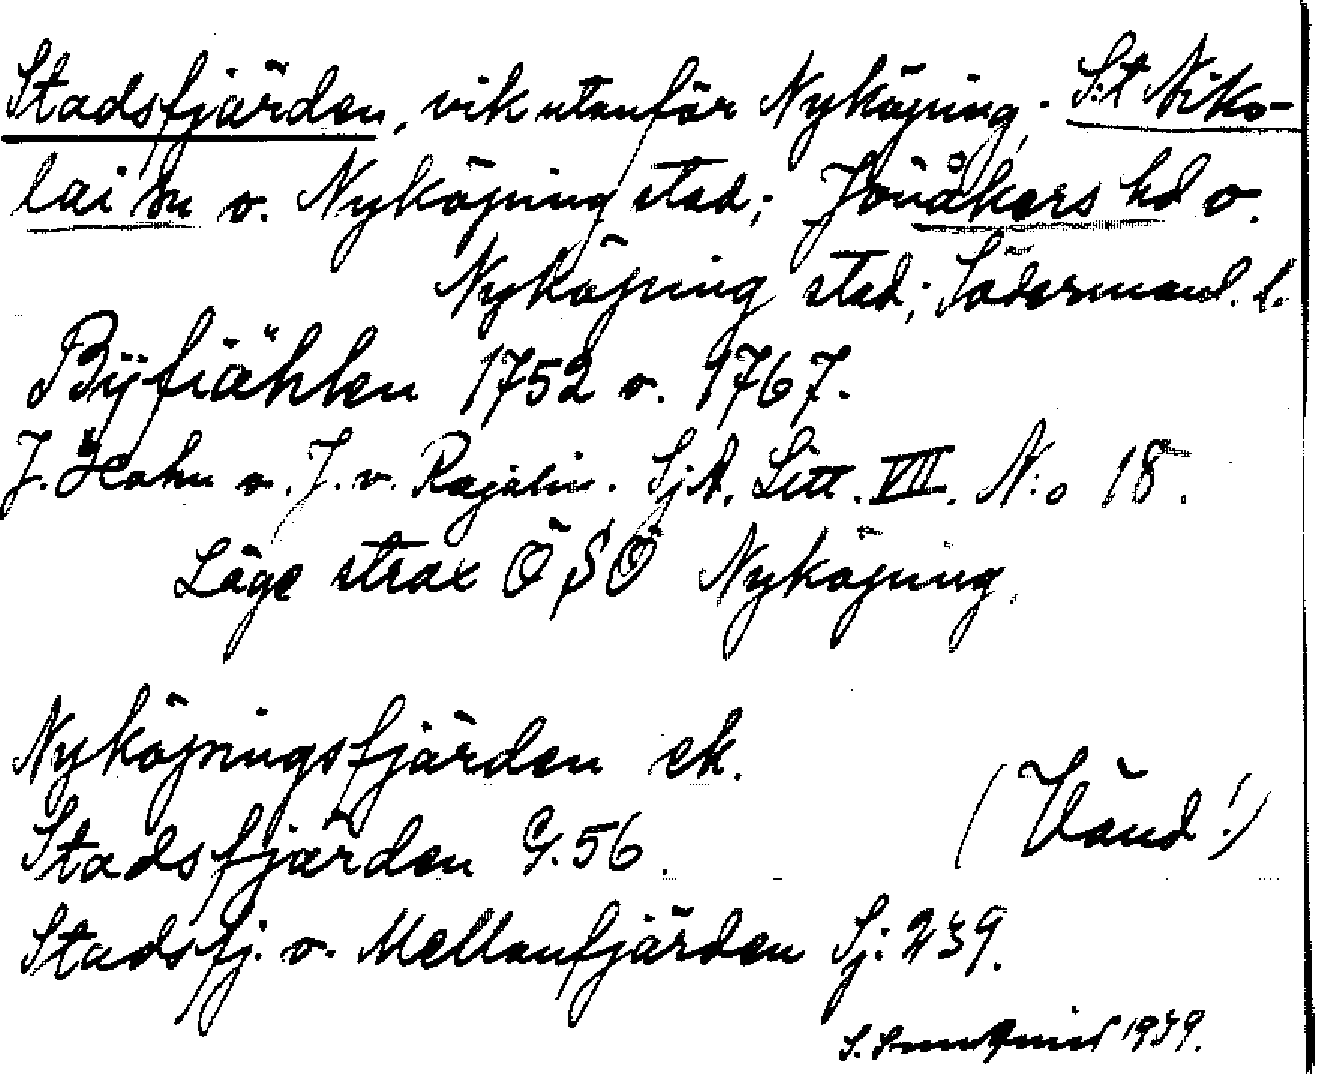 Stadsfjärden, vik utanför Nyköping. S:t Niko-
lai sn o. Nyköping stad; Jönåkers hd o.
Nyköping stad; Södermanl. l.
Bÿfiählen 1752 o. 1767.
J. Hahn o. J. v. Rajalin. SjA. Litt. VII. N:o 18.
Läge strax ÖSÖ Nyköping.
Nyköpingsfjärden ek.
(Vänd!)
Stadsfjärden G. 56.
Stadsfj. o. Mellanfjärden Sj: 239.
S. 1939.